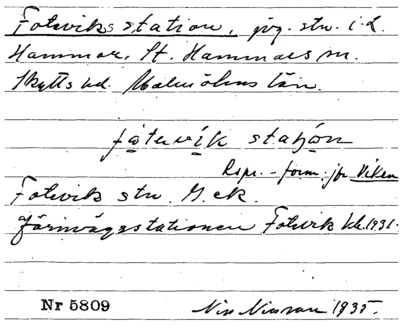 Foteviks station, jvg. stn. i L.
Hammar, St. Hammars sn.
Skytts hd. Malmöhus län.
fåtəvik staʃón
Repr.-form; jfr Viken
Fotevik stn. G.ek.
Järnvägsstationen Fotevik kk 1931.
Nr 5809
Nils Nilsson 1935.